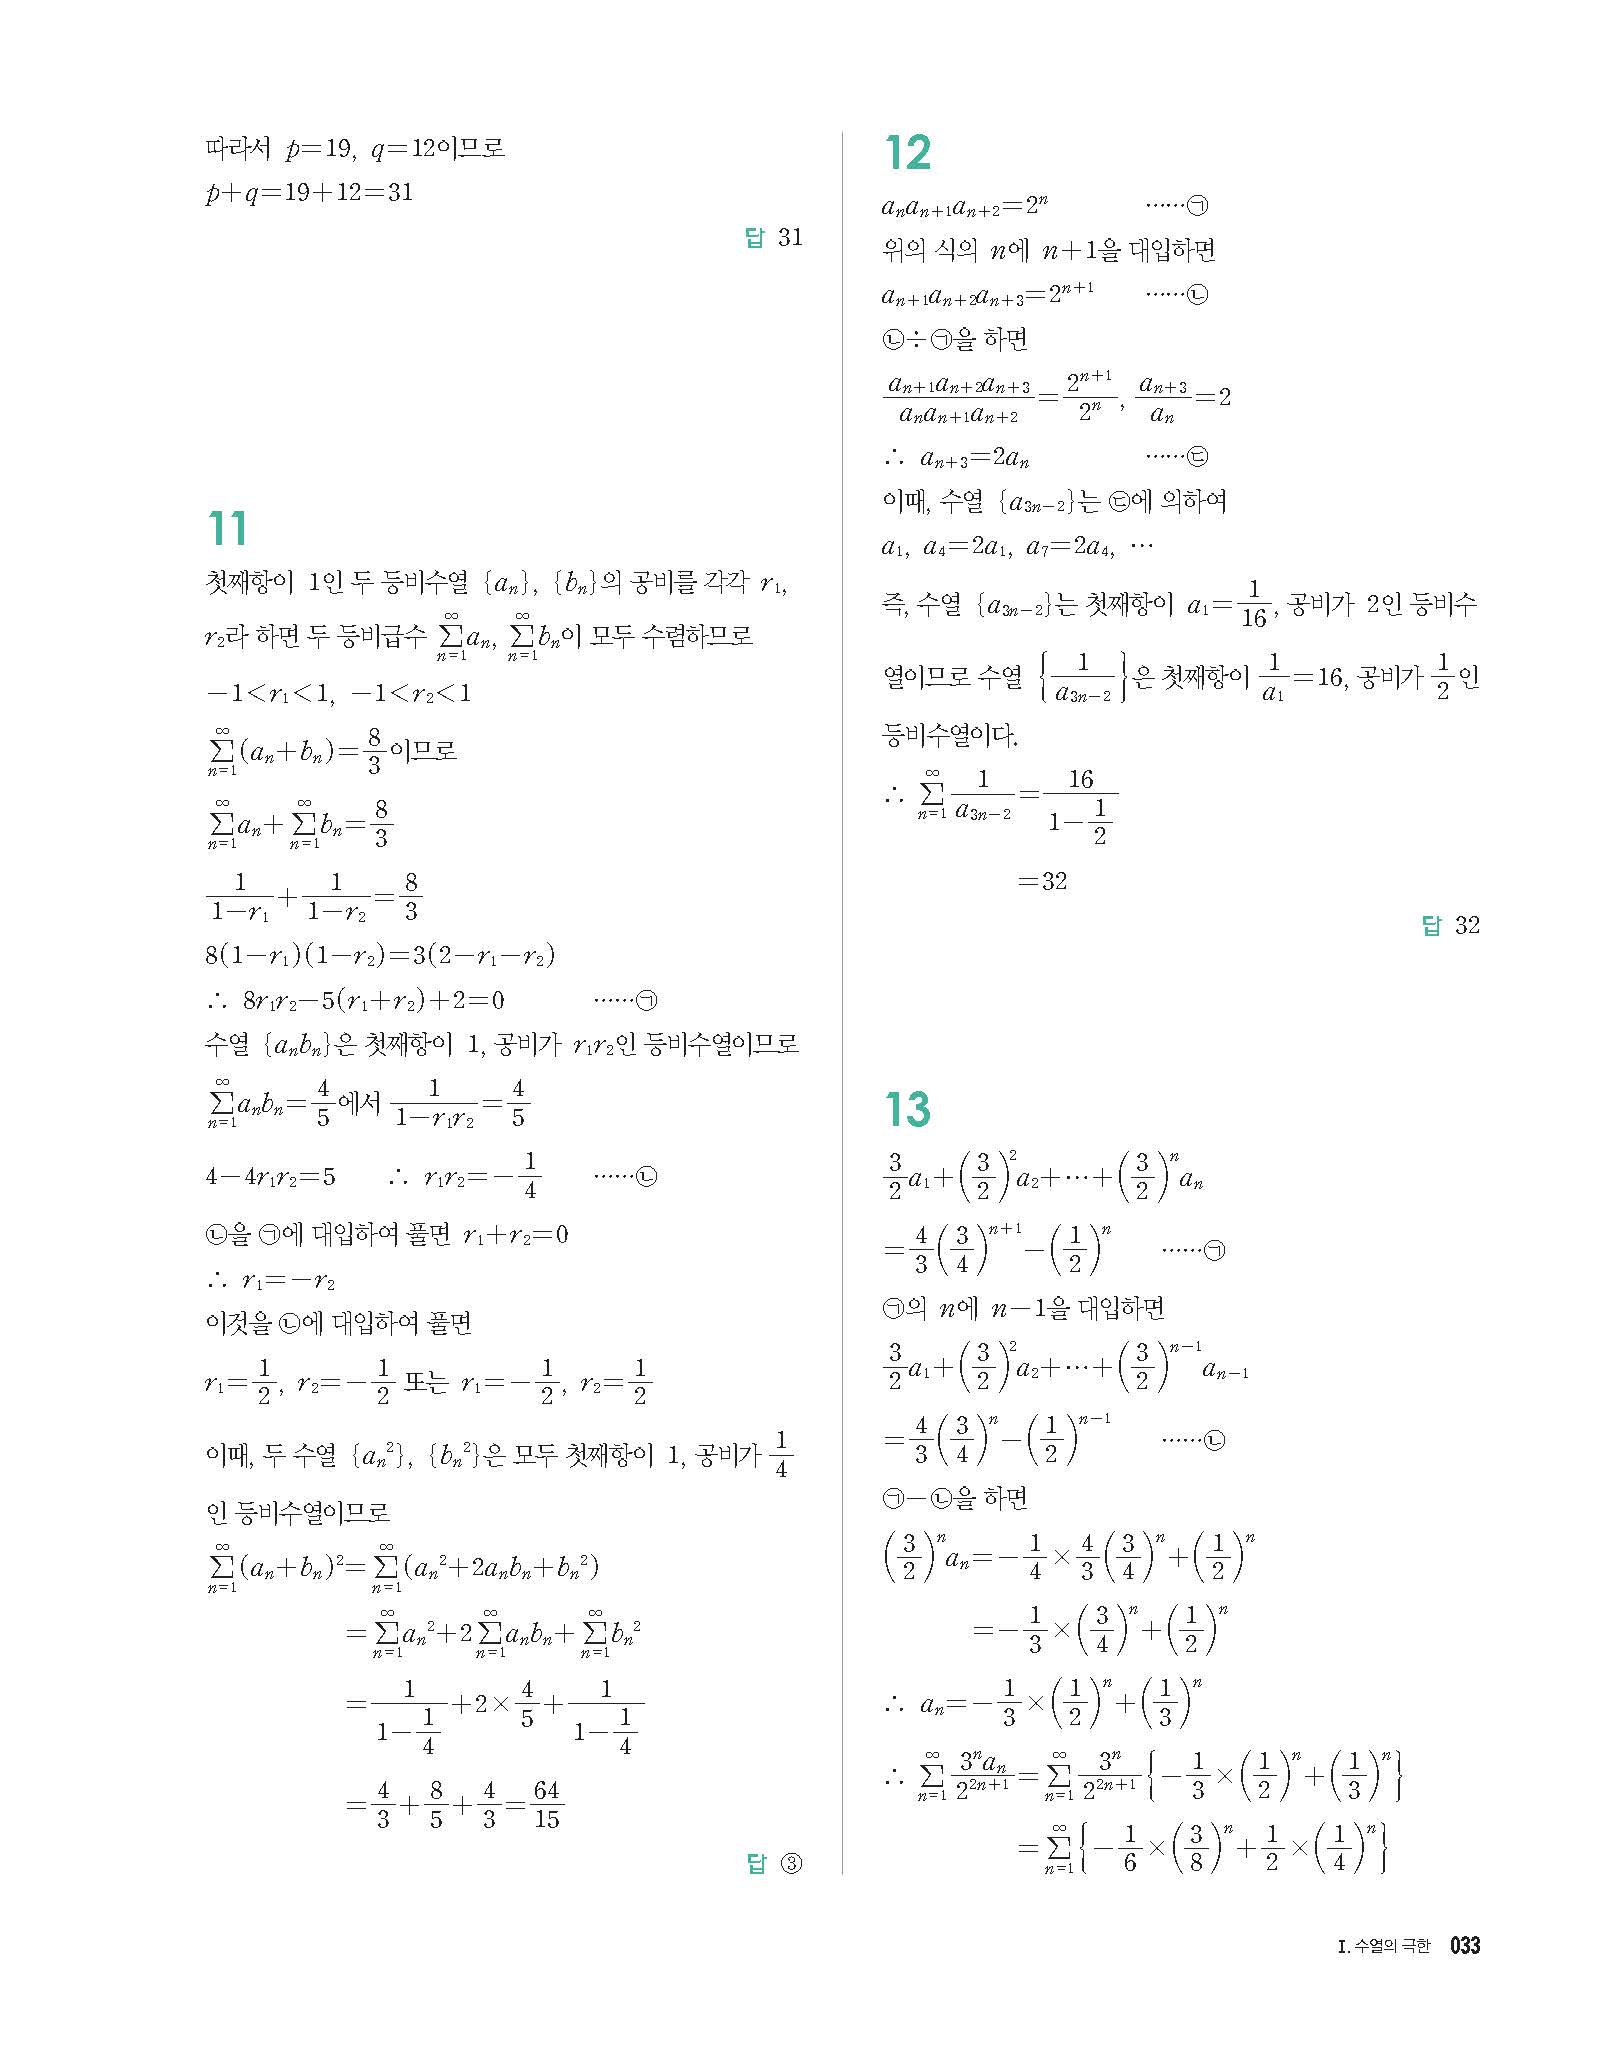 따라서 p=19, q=12이므로
p+q=19+12=31
답 31
11
첫째항이 1인 두 등비수열 {aₙ}, {bₙ}의 공비를 각각 r₁,
r₂라 하면 두 등비급수 ∑_{n=1}^{∞} aₙ, ∑_{n=1}^{∞} bₙ이 모두 수렴하므로
-1<r₁<1, -1<r₂<1
∑_{n=1}^{∞} (aₙ+bₙ)=8/3이므로
∑_{n=1}^{∞} aₙ+∑_{n=1}^{∞} bₙ=8/3
1/(1-r₁)+1/(1-r₂)=8/3
8(1-r₁)(1-r₂)=3(2-r₁-r₂)
∴ 8r₁r₂-5(r₁+r₂)+2=0 ……㉠
수열 {aₙbₙ}은 첫째항이 1, 공비가 r₁r₂인 등비수열이므로
∑_{n=1}^{∞} aₙbₙ=4/5에서 1/(1-r₁r₂)=4/5
4-4r₁r₂=5 ∴ r₁r₂=-1/4 ……㉡
㉡을 ㉠에 대입하여 풀면 r₁+r₂=0
∴ r₁=-r₂
이것을 ㉡에 대입하여 풀면
r₁=1/2, r₂=-1/2 또는 r₁=-1/2, r₂=1/2
이때, 두 수열 {aₙ²}, {bₙ²}은 모두 첫째항이 1, 공비가 1/4
인 등비수열이므로
∑_{n=1}^{∞} (aₙ+bₙ)²=∑_{n=1}^{∞} (aₙ²+2aₙbₙ+bₙ²)
=∑_{n=1}^{∞} aₙ²+2∑_{n=1}^{∞} aₙbₙ+∑_{n=1}^{∞} bₙ²
=1/(1-1/4)+2×4/5+1/(1-1/4)
=4/3+8/5+4/3=64/15
답 ③
12
aₙaₙ₊₁aₙ₊₂=2ⁿ ……㉠
위의 식의 n에 n+1을 대입하면
aₙ₊₁aₙ₊₂aₙ₊₃=2ⁿ⁺¹ ……㉡
㉡÷㉠을 하면
(aₙ₊₁aₙ₊₂aₙ₊₃)/(aₙaₙ₊₁aₙ₊₂)=2ⁿ⁺¹/2ⁿ, aₙ₊₃/aₙ=2
∴ aₙ₊₃=2aₙ ……㉢
이때, 수열 {a₃ₙ₋₂}는 ㉢에 의하여
a₁, a₄=2a₁, a₇=2a₄, …
즉, 수열 {a₃ₙ₋₂}는 첫째항이 a₁=1/16, 공비가 2인 등비수
열이므로 수열 {1/a₃ₙ₋₂}은 첫째항이 1/a₁=16, 공비가 1/2인
등비수열이다.
∴ ∑_{n=1}^{∞} 1/a₃ₙ₋₂=16/(1-1/2)
=32
답 32
13
3/2 a₁+(3/2)²a₂+⋯+(3/2)ⁿaₙ
=4/3(3/4)ⁿ⁺¹-(1/2)ⁿ ……㉠
㉠의 n에 n-1을 대입하면
3/2 a₁+(3/2)²a₂+⋯+(3/2)ⁿ⁻¹aₙ₋₁
=4/3(3/4)ⁿ-(1/2)ⁿ⁻¹ ……㉡
㉠-㉡을 하면
(3/2)ⁿaₙ=-1/4×4/3(3/4)ⁿ+(1/2)ⁿ
=-1/3×(3/4)ⁿ+(1/2)ⁿ
∴ aₙ=-1/3×(1/2)ⁿ+(1/3)ⁿ
∴ ∑_{n=1}^{∞} 3ⁿaₙ/2²ⁿ⁺¹=∑_{n=1}^{∞} 3ⁿ/2²ⁿ⁺¹{-1/3×(1/2)ⁿ+(1/3)ⁿ}
=∑_{n=1}^{∞} {-1/6×(3/8)ⁿ+1/2×(1/4)ⁿ}
I. 수열의 극한 033